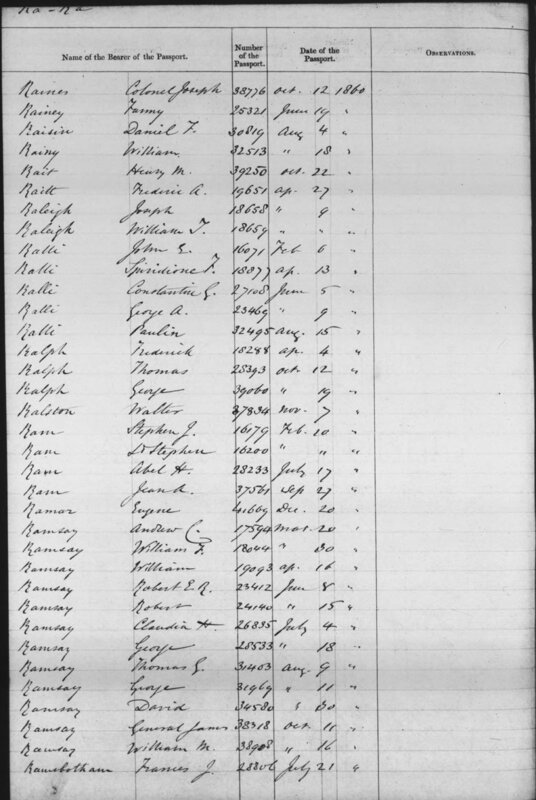 Ra-Ra
Name of the Bearer of the Passport. Number of the Passport. Date of the Passport. Observations.
Raines Colonel Joseph 38776 Oct. 12 1860
Rainey Fanny 25321 June 19 "
Raisin Daniel F. 30819 Aug 4 "
Rainy William 32513 " 18 "
Rait Henry M. 39250 Oct. 22 "
Raitt Frederic A. 19651 Ap. 27 "
Raleigh Joseph 18658 " 9 "
Raleigh William T. 18659 " " "
Ralli John E. 16071 Feb 6 "
Ralli Spiridione F. 18877 Ap. 13 "
Ralli Constantine G. 27108 June 5 "
Ralli George A. 23469 " 9 "
Ralli Paulin 32495 Aug. 15 "
Ralph Frederick 18288 Ap. 4 "
Ralph Thomas 25393 Oct. 12 "
Ralph George 39060 " 19 "
Ralston Walter 37834 Nov. 7 "
Ram Stephen J. 16179 Feb. 20 "
Ram Dr Stephen 16200 " " "
Ram Abel H. 28233 July 17 "
Ram Jean A. 37561 Sep 27 "
Ramar Eugene 41669 Dec. 20 "
Ramsay Andrew C. 17594 Mar. 20 "
Ramsay William F. 18044 " 30 "
Ramsay William 19093 Ap. 16 "
Ramsay Robert E. R. 23412 June 8 "
Ramsay Robert 24140 " 15 "
Ramsay Claudia H. 26835 July 4 "
Ramsay George 28533 " 18 "
Ramsay Thomas G. 31403 Aug. 9 "
Ramsay George 31969 " 11 "
Ramsay David 34580 " 30 "
Ramsay General James 38318 Oct. 11 "
Ramsay William M. 38908 " 16 "
Ramsbotham Frances J. 28806 July 21 "